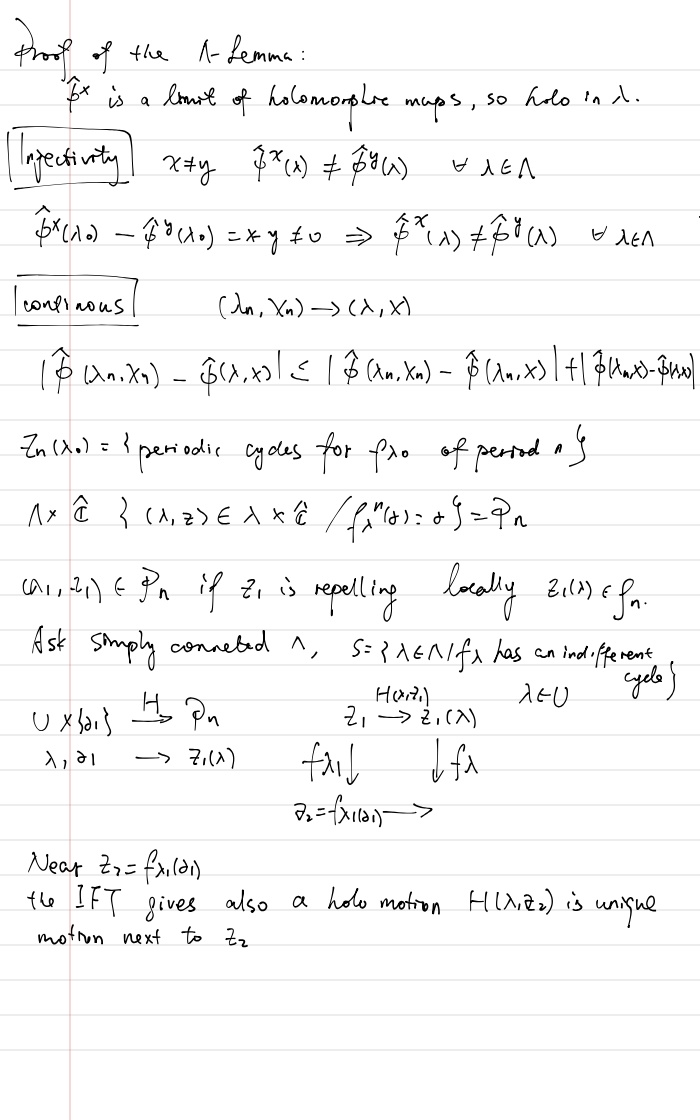 Proof of the Λ-Lemma:
φ̂ˣ is a limit of holomorphic maps, so holo in λ.
Injectivity x≠y φ̂ˣ(λ) ≠ φ̂ʸ(λ) ∀ λ∈Λ
φ̂ˣ(λ₀) − φ̂ʸ(λ₀) = x-y ≠ 0 ⇒ φ̂ˣ(λ) ≠ φ̂ʸ(λ) ∀ λ∈Λ
continous (λn, Xn) → (λ, x)
|φ̂(λn, Xn) − φ̂(λ, x)| ≤ |φ̂(λn, Xn) − φ̂(λn, x)| + |φ̂(λn,x)-φ̂(λ,x)|
Zn(λ₀) = { periodic cycles for fλ₀ of period n }
Λ × Ĉ { (λ, z) ∈ λ × Ĉ / fλⁿ(z) = z } = Pn
(λ1, z1) ∈ Pn if z1 is repelling locally z1(λ) ∈ Pn.
Ask simply conneted Λ, S = { λ∈Λ / fλ has an indifferent cycle }
H(λ,z1) λ∈U
U × {z1} →H Pn z1 → z1(λ)
λ, z1 → z1(λ) fλ1 ↓ ↓ fλ
z2 = fλ1(z1) →
Near z2 = fλ1(z1)
the IFT gives also a holo motion H(λ, z2) is unique
motion next to z2